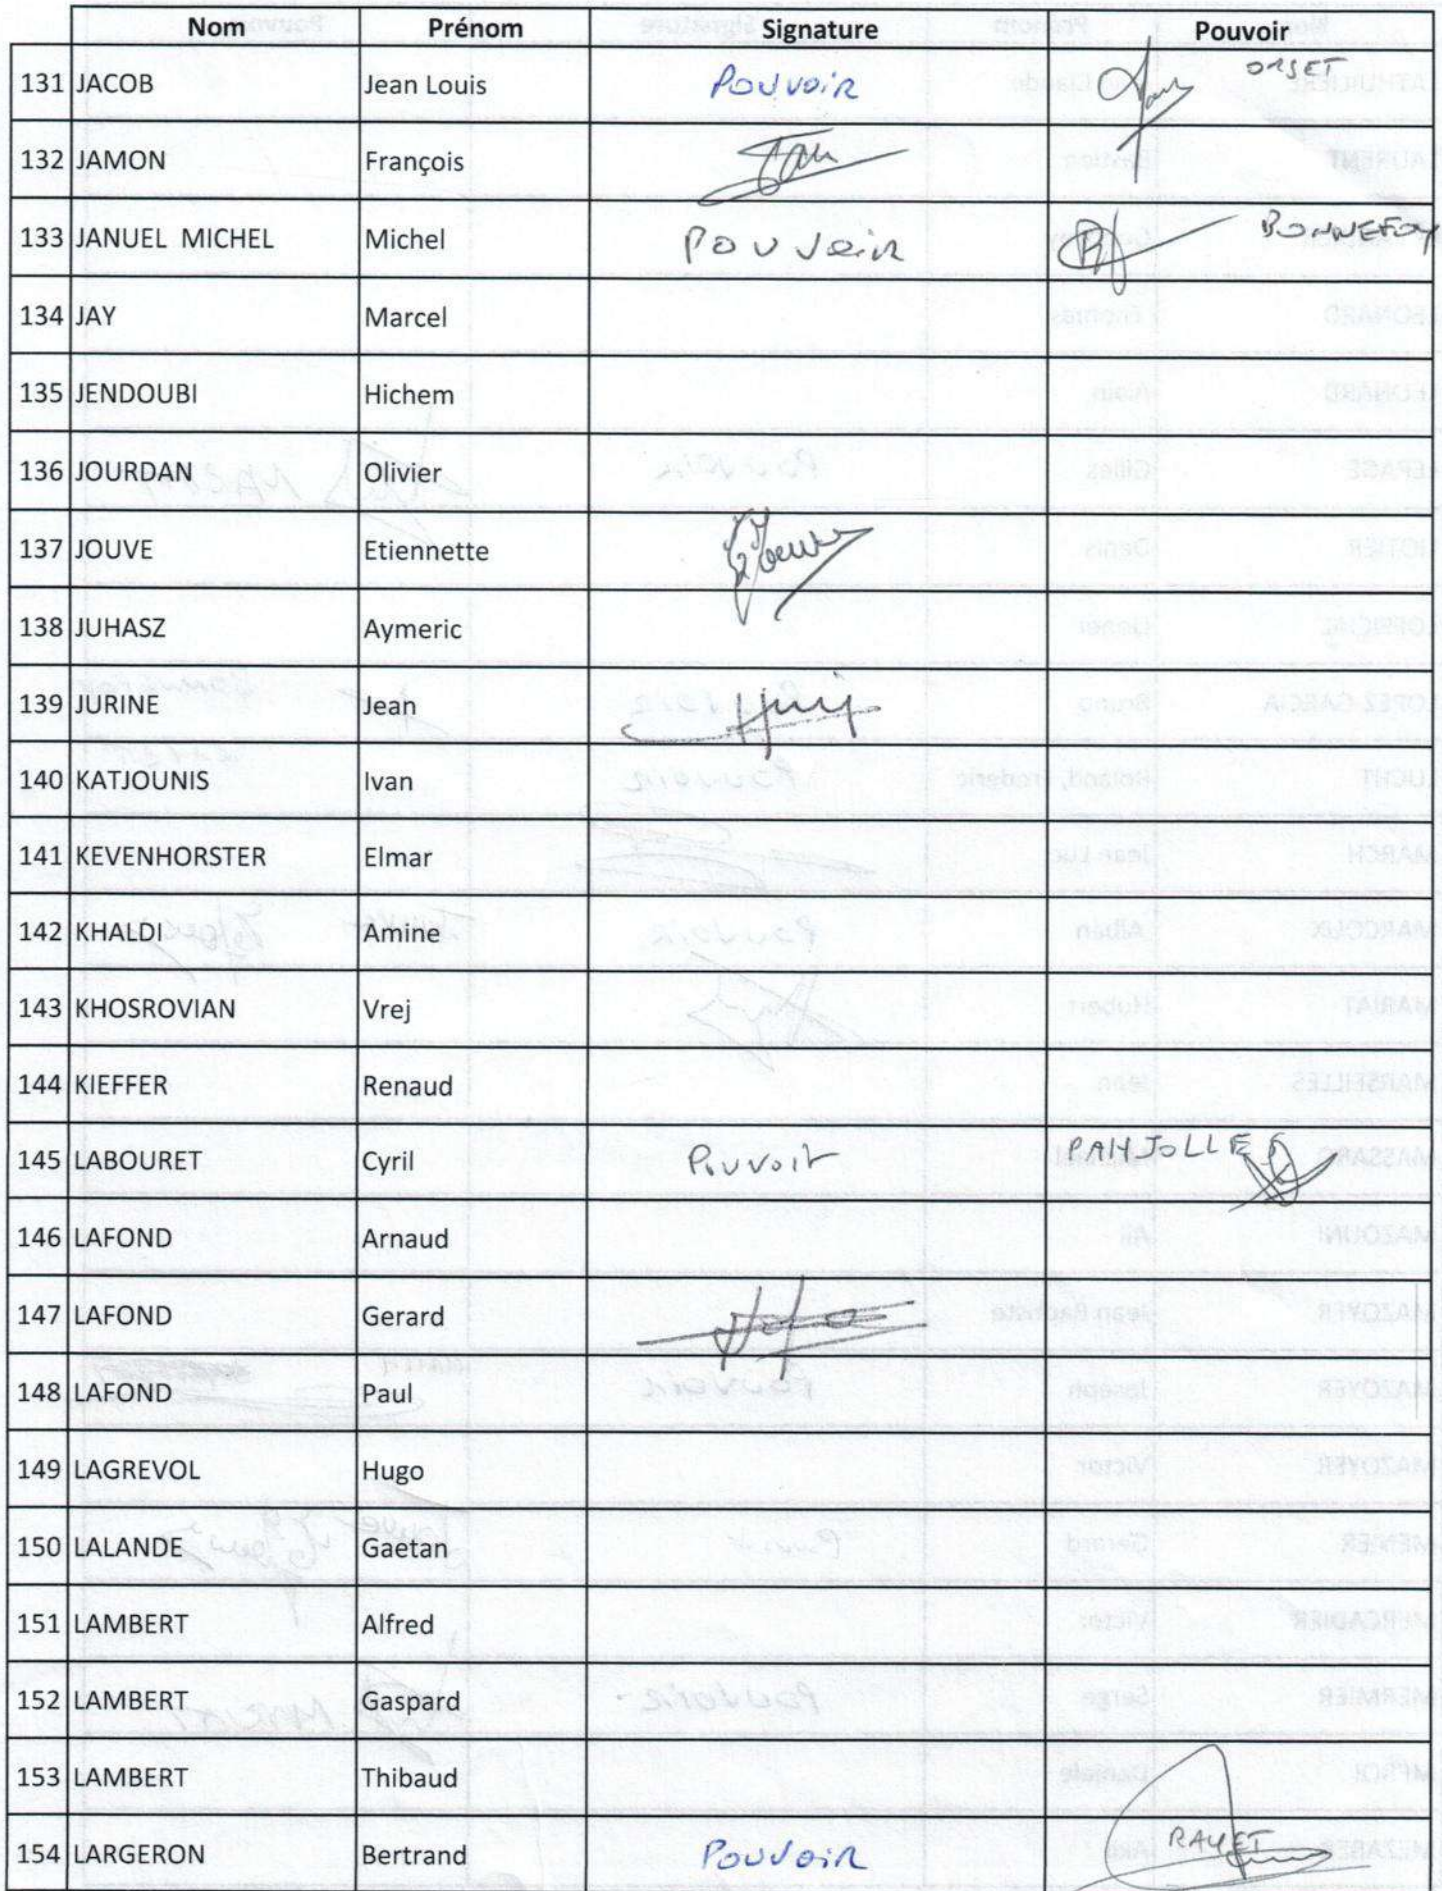 Nom Prénom Signature Pouvoir
131 JACOB Jean Louis Pouvoir ORSET
132 JAMON François
133 JANUEL MICHEL Michel Pouvoir BONNEFOY
134 JAY Marcel
135 JENDOUBI Hichem
136 JOURDAN Olivier
137 JOUVE Etiennette
138 JUHASZ Aymeric
139 JURINE Jean
140 KATJOUNIS Ivan
141 KEVENHORSTER Elmar
142 KHALDI Amine
143 KHOSROVIAN Vrej
144 KIEFFER Renaud
145 LABOURET Cyril Pouvoir PANJOLLE
146 LAFOND Arnaud
147 LAFOND Gerard
148 LAFOND Paul
149 LAGREVOL Hugo
150 LALANDE Gaëtan
151 LAMBERT Alfred
152 LAMBERT Gaspard
153 LAMBERT Thibaud
154 LARGERON Bertrand Pouvoir